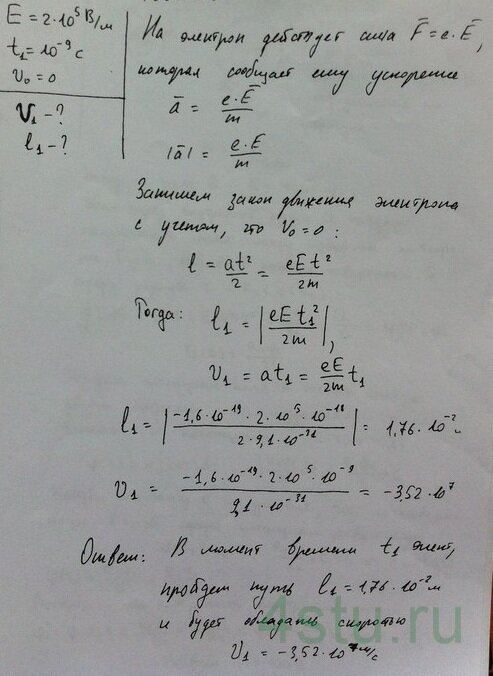 E = 2·10⁵ В/м
t₁ = 10⁻⁹ с
v₀ = 0
v₁ - ?
l₁ - ?
На электрон действует сила F̄ = e·Ē,
которая сообщает ему ускорение
ā = e·Ē/m
|ā| = e·E/m
Запишем закон движения электрона
с учетом, что v₀ = 0 :
l = at²/2 = eEt²/2m
Тогда: l₁ = |eEt₁²/2m|,
v₁ = at₁ = eE/2m t₁
l₁ = |-1,6·10⁻¹⁹·2·10⁵·10⁻¹⁸/2·9,1·10⁻³¹| = 1,76·10⁻² м
v₁ = -1,6·10⁻¹⁹·2·10⁵·10⁻⁹/9,1·10⁻³¹ = -3,52·10⁷
Ответ: В момент времени t₁ элект,
пройдет путь l₁ = 1,76·10⁻² м
и будет обладать скоростью
v₁ = -3,52·10⁷ м/с
4stu.ru